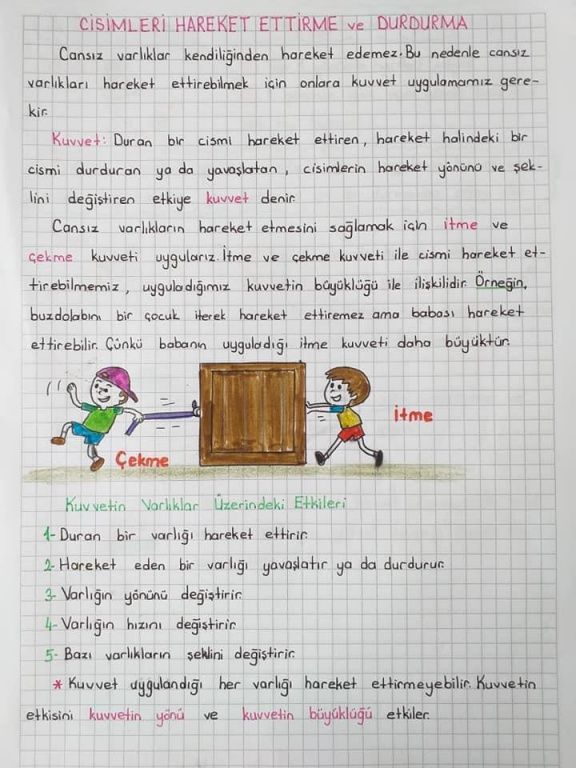 CİSİMLERİ HAREKET ETTİRME ve DURDURMA
Cansız varlıklar kendiliğinden hareket edemez. Bu nedenle cansız
varlıkları hareket ettirebilmek için onlara kuvvet uygulamamız gere-
kir.
Kuvvet: Duran bir cismi hareket ettiren, hareket halindeki bir
cismi durduran ya da yavaşlatan, cisimlerin hareket yönünü ve şek-
lini değiştiren etkiye kuvvet denir.
Cansız varlıkların hareket etmesini sağlamak için itme ve
çekme kuvveti uygularız. İtme ve çekme kuvveti ile cismi hareket et-
tirebilmemiz, uyguladığımız kuvvetin büyüklüğü ile ilişkilidir. Örneğin,
buzdolabını bir çocuk iterek hareket ettiremez ama babası hareket
ettirebilir. Çünkü babanın uyguladığı itme kuvveti daha büyüktür.
İtme
Çekme
Kuvvetin Varlıklar Üzerindeki Etkileri
1- Duran bir varlığı hareket ettirir.
2- Hareket eden bir varlığı yavaşlatır ya da durdurur.
3- Varlığın yönünü değiştirir.
4- Varlığın hızını değiştirir.
5- Bazı varlıkların şeklini değiştirir.
* Kuvvet uygulandığı her varlığı hareket ettirmeyebilir. Kuvvetin
etkisini kuvvetin yönü ve kuvvetin büyüklüğü etkiler.